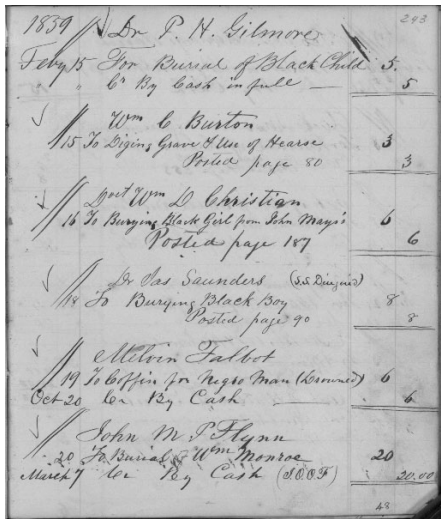 243
1839 Dr P. H. Gilmore
Feby 15 For Burial of Black Child 5.
" Cr By Cash in full — 5
Wm C Burton
15 To Diging Grave & Use of Hearse 3
Posted page 80 3
Doct Wm D Christian
16 To Burying Black Girl from John Mays's 6
Posted page 187 6
Dr Jas Saunders (S.S. Diuguid)
18 To Burying Black Boy 8
Posted page 90 8
Melvin Talbot
19 To Coffin for Negro Man (Drowned) 6
Oct 20 Cr By Cash — 6
John M P Flynn
20 To Burial of Wm Monroe 20
March 7 Cr By Cash (I.O.O.F) 20.00
48